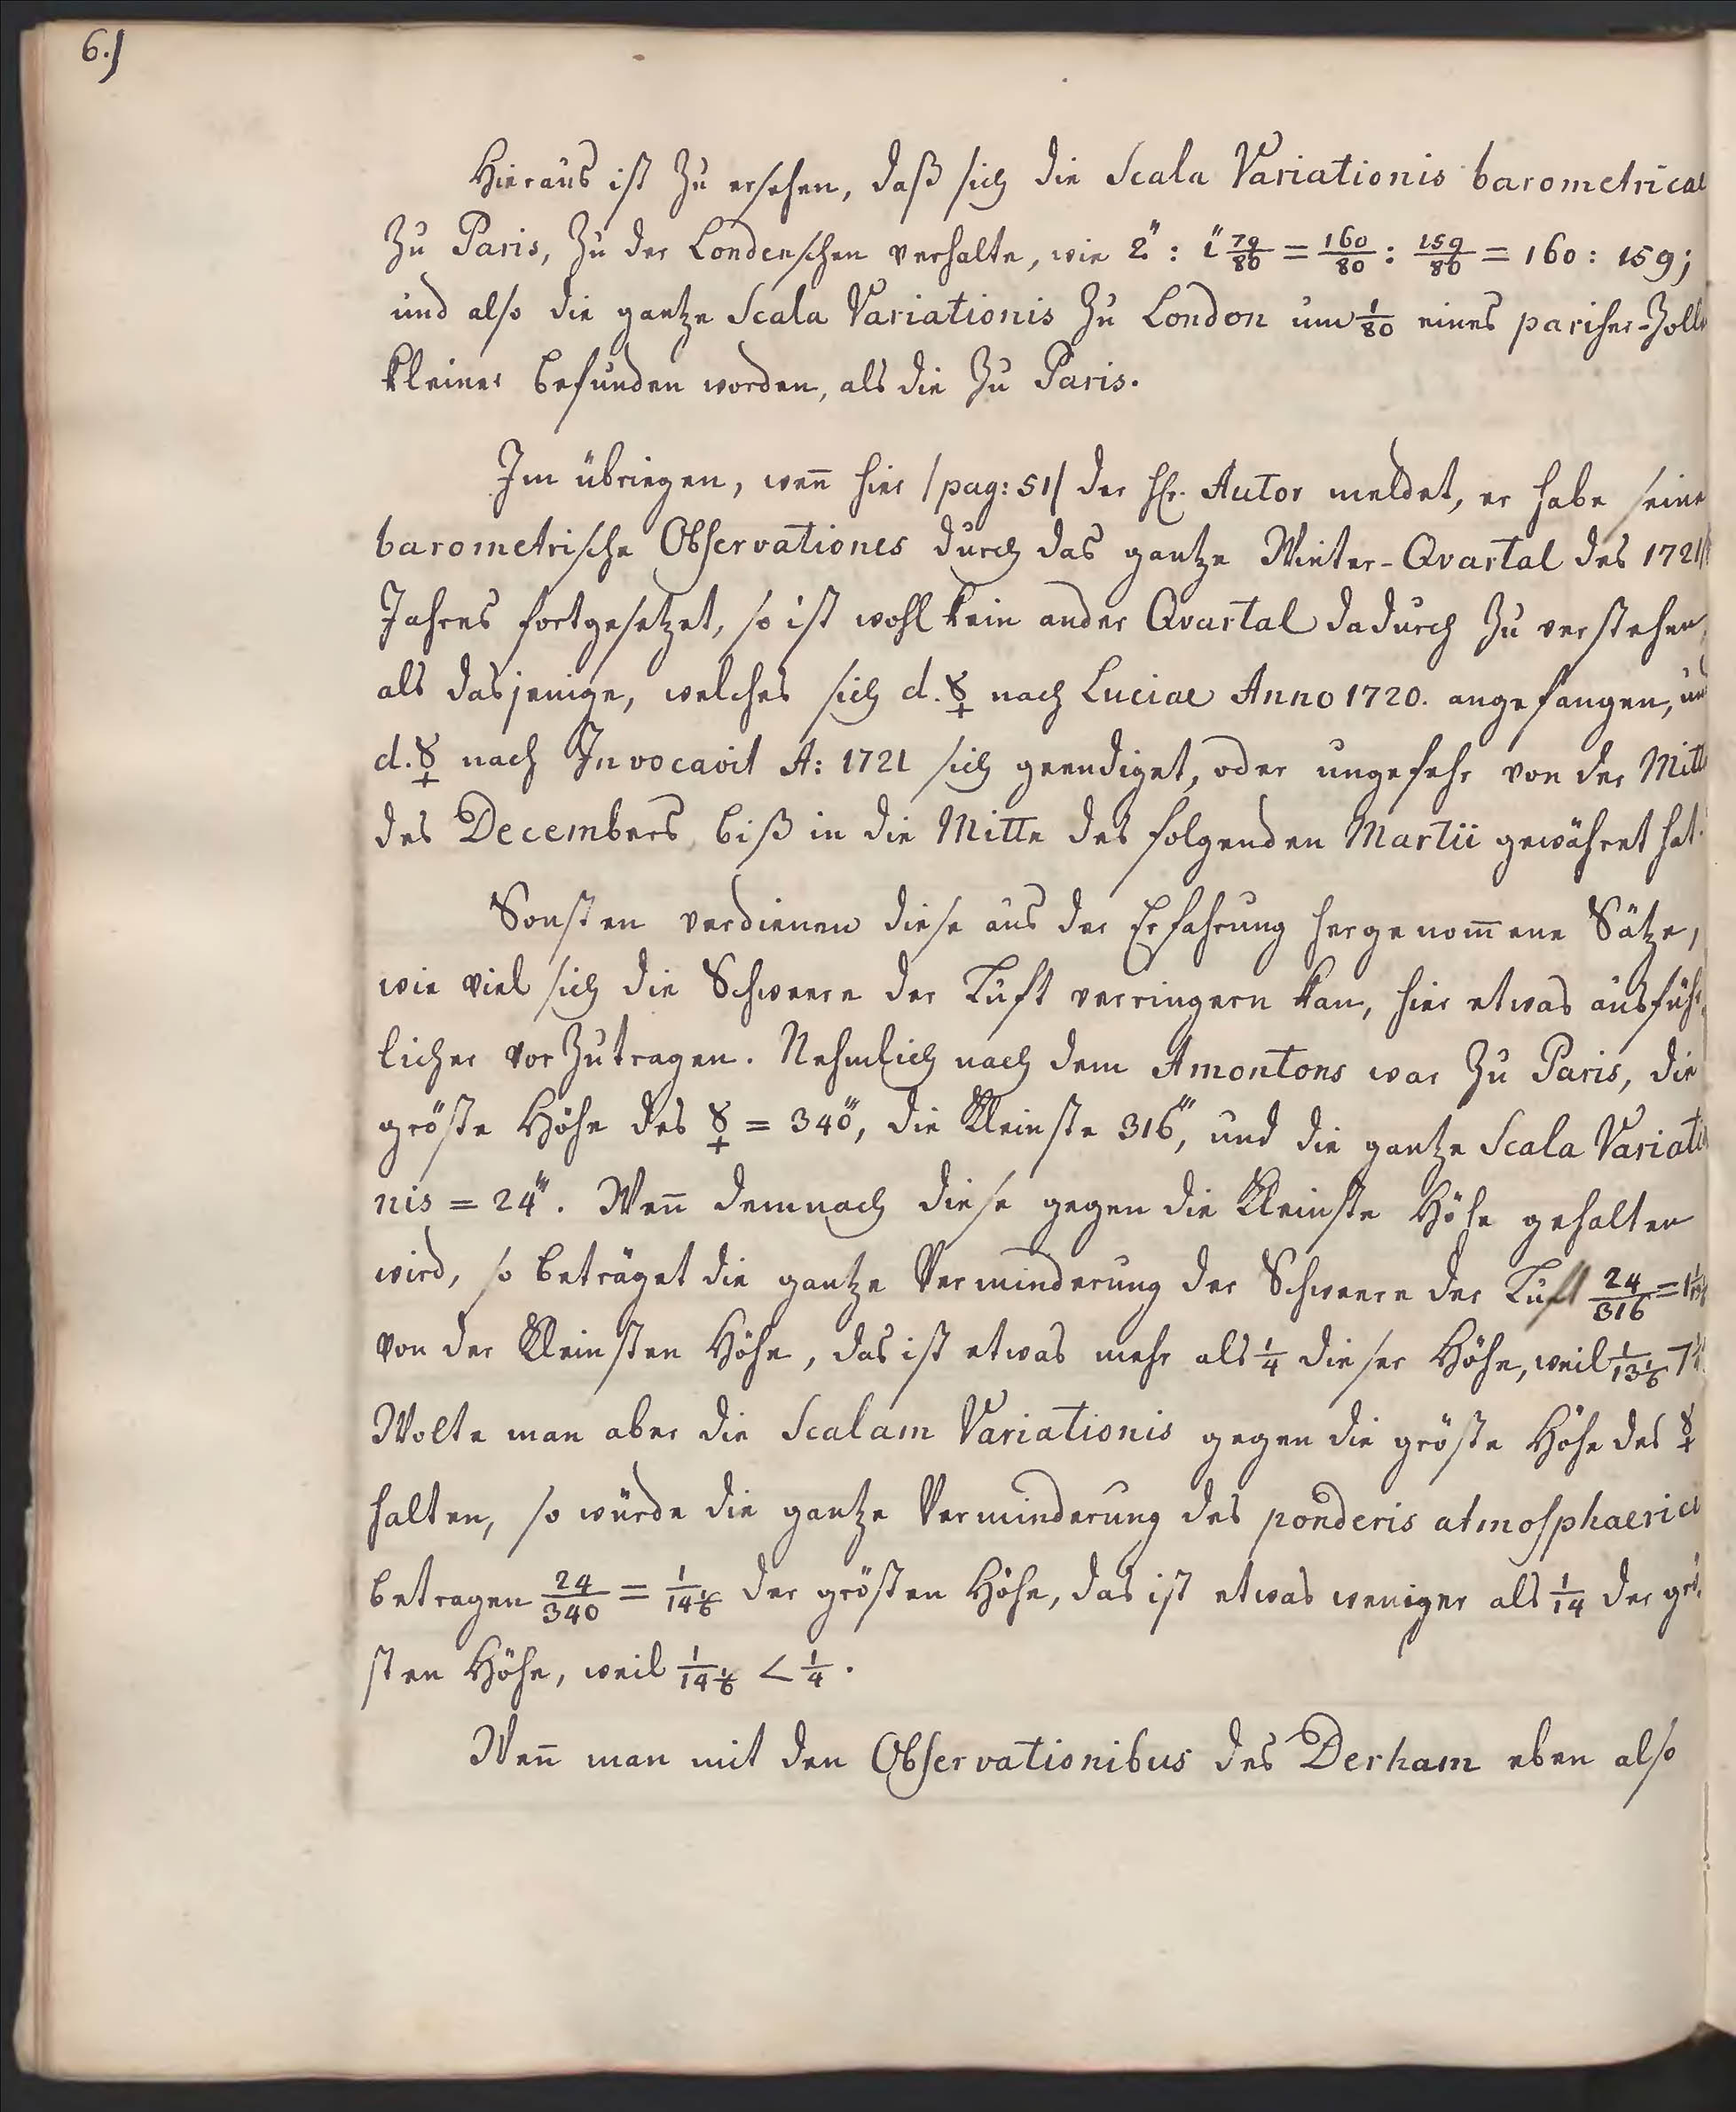 6.)
Hieraus ist zu ersehen, daß sich die Scala Variationis barometricae
zu Paris, zu der Londenschen verhalte, wie 2": 1" 79/80 = 160/80 : 159/80 = 160 : 159;
und also die gantze Scala Variationis zu London um 1/80 eines pariser-Zolls
kleiner befunden worden, als die zu Paris.
Im übriegen, weñ hier /pag: 51/ der Hr. Autor meldet, er habe seine
barometrische Observationes durch das gantze Winter-Qvartal des 1721
Jahres fortgesetzet, so ist wohl kein ander Qvartal dadurch zu verstehen,
als dasjenige, welches sich d. ☿ nach Luciae Anno 1720. angefangen, und
d. ☿ nach Invocavit A: 1721 sich geendiget, oder ungefehr von der Mitte
des Decembers, biß in die Mitte des folgenden Martii gewähret hat.
Sonsten verdienen diese aus der Erfahrung hergenom̄ene Sätze,
wie viel sich die Schweere der Luft verringern kan, hier etwas ausführ
licher vor zutragen. Nehmlich nach dem Amontons war zu Paris, die
gröste Höhe des ☿ = 340''', die Kleinste 316''', und die gantze Scala Variatio
nis = 24'''. Weñ demnach diese gegen die Kleinste Höhe gehalten
wird, so beträget die gantze Verminderung der Schweere der Luft 24/316 =
von der Kleinsten Höhe, das ist etwas mehr als 1/4 dieser Höhe, weil 1/13 1/6
Wolte man aber die Scalam Variationis gegen die gröste Höhe des ☿
halten, so würde die gantze Verminderung des ponderis atmosphaerici
betragen 24/340 = 1/14 1/6 der grösten Höhe, das ist etwas weniger als 1/14 der grö
sten Höhe, weil 1/14 1/6 < 1/4.
Weñ man mit den Observationibus des Derham eben also